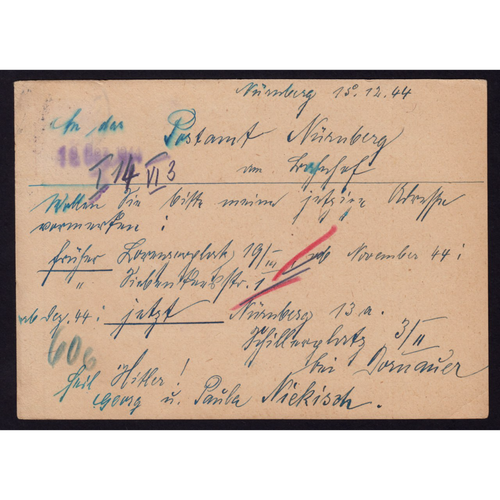 Nürnberg 15.12.44
An das
Postamt Nürnberg
am Bahnhof
I 14 VI 3
Wollen Sie bitte meine jetzige Adresse
vormerken:
früher Lorenzerplatz 19/III ab November 44:
" Siebenkeesstr. 1
ab Dez. 44: jetzt Nürnberg 13 a.
Schillerplatz 3/II
bei Dornauer
606
Heil Hitler!
Georg u. Paula Niekisch.